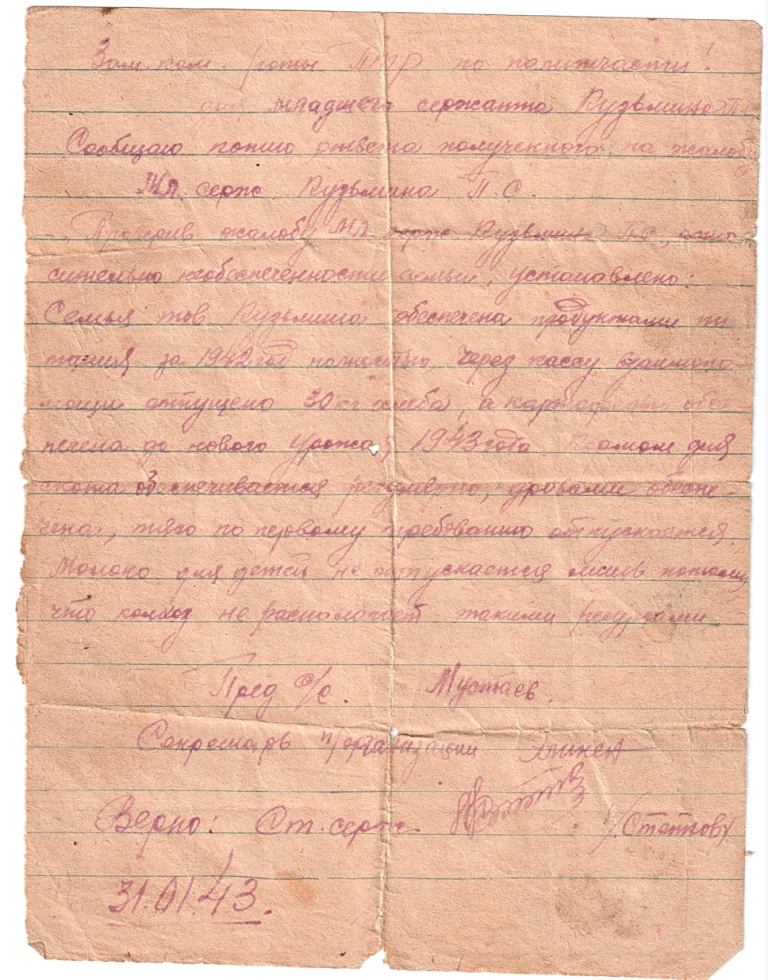 Зам. ком. роты ПМР по политчасти!
для младшего сержанта Кузьмина П.
Сообщаю копию ответа полученного на жалобу
Мл. серж. Кузьмина П.С.
- Проверив жалобу Мл. серж Кузьмина П.С, отно-
сительно необеспеченности семьи, установлено:
Семья тов. Кузьмина обеспечена продуктами пи
тания за 1942 год полностью, через кассу взаимопо
мощи отпущено 30 кг хлеба, а картофелем обес
печена до нового урожая 1943 года для
скота обеспечивается дровами обеспе-
чена, тягло по первому требованию отпускается.
Молоко для детей не отпускается лишь потому,
что колхоз не располагает такими ресурсами.
Пред с/с. Мустаев.
Секретарь п/организации
Верно: Ст. серж.
31.01.43.